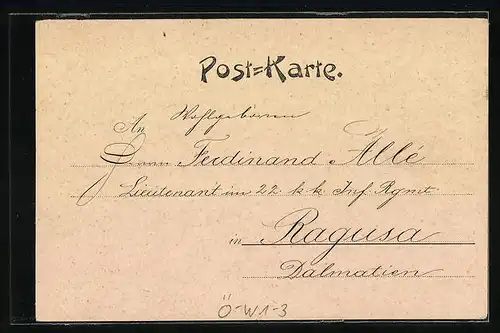 Post=Karte.
An Wohlgeboren
Herrn Ferdinand Allé
Lieutenant im 22. k. k. Inf. Rgmt.
in Ragusa
Dalmatien
Ö-W1-3